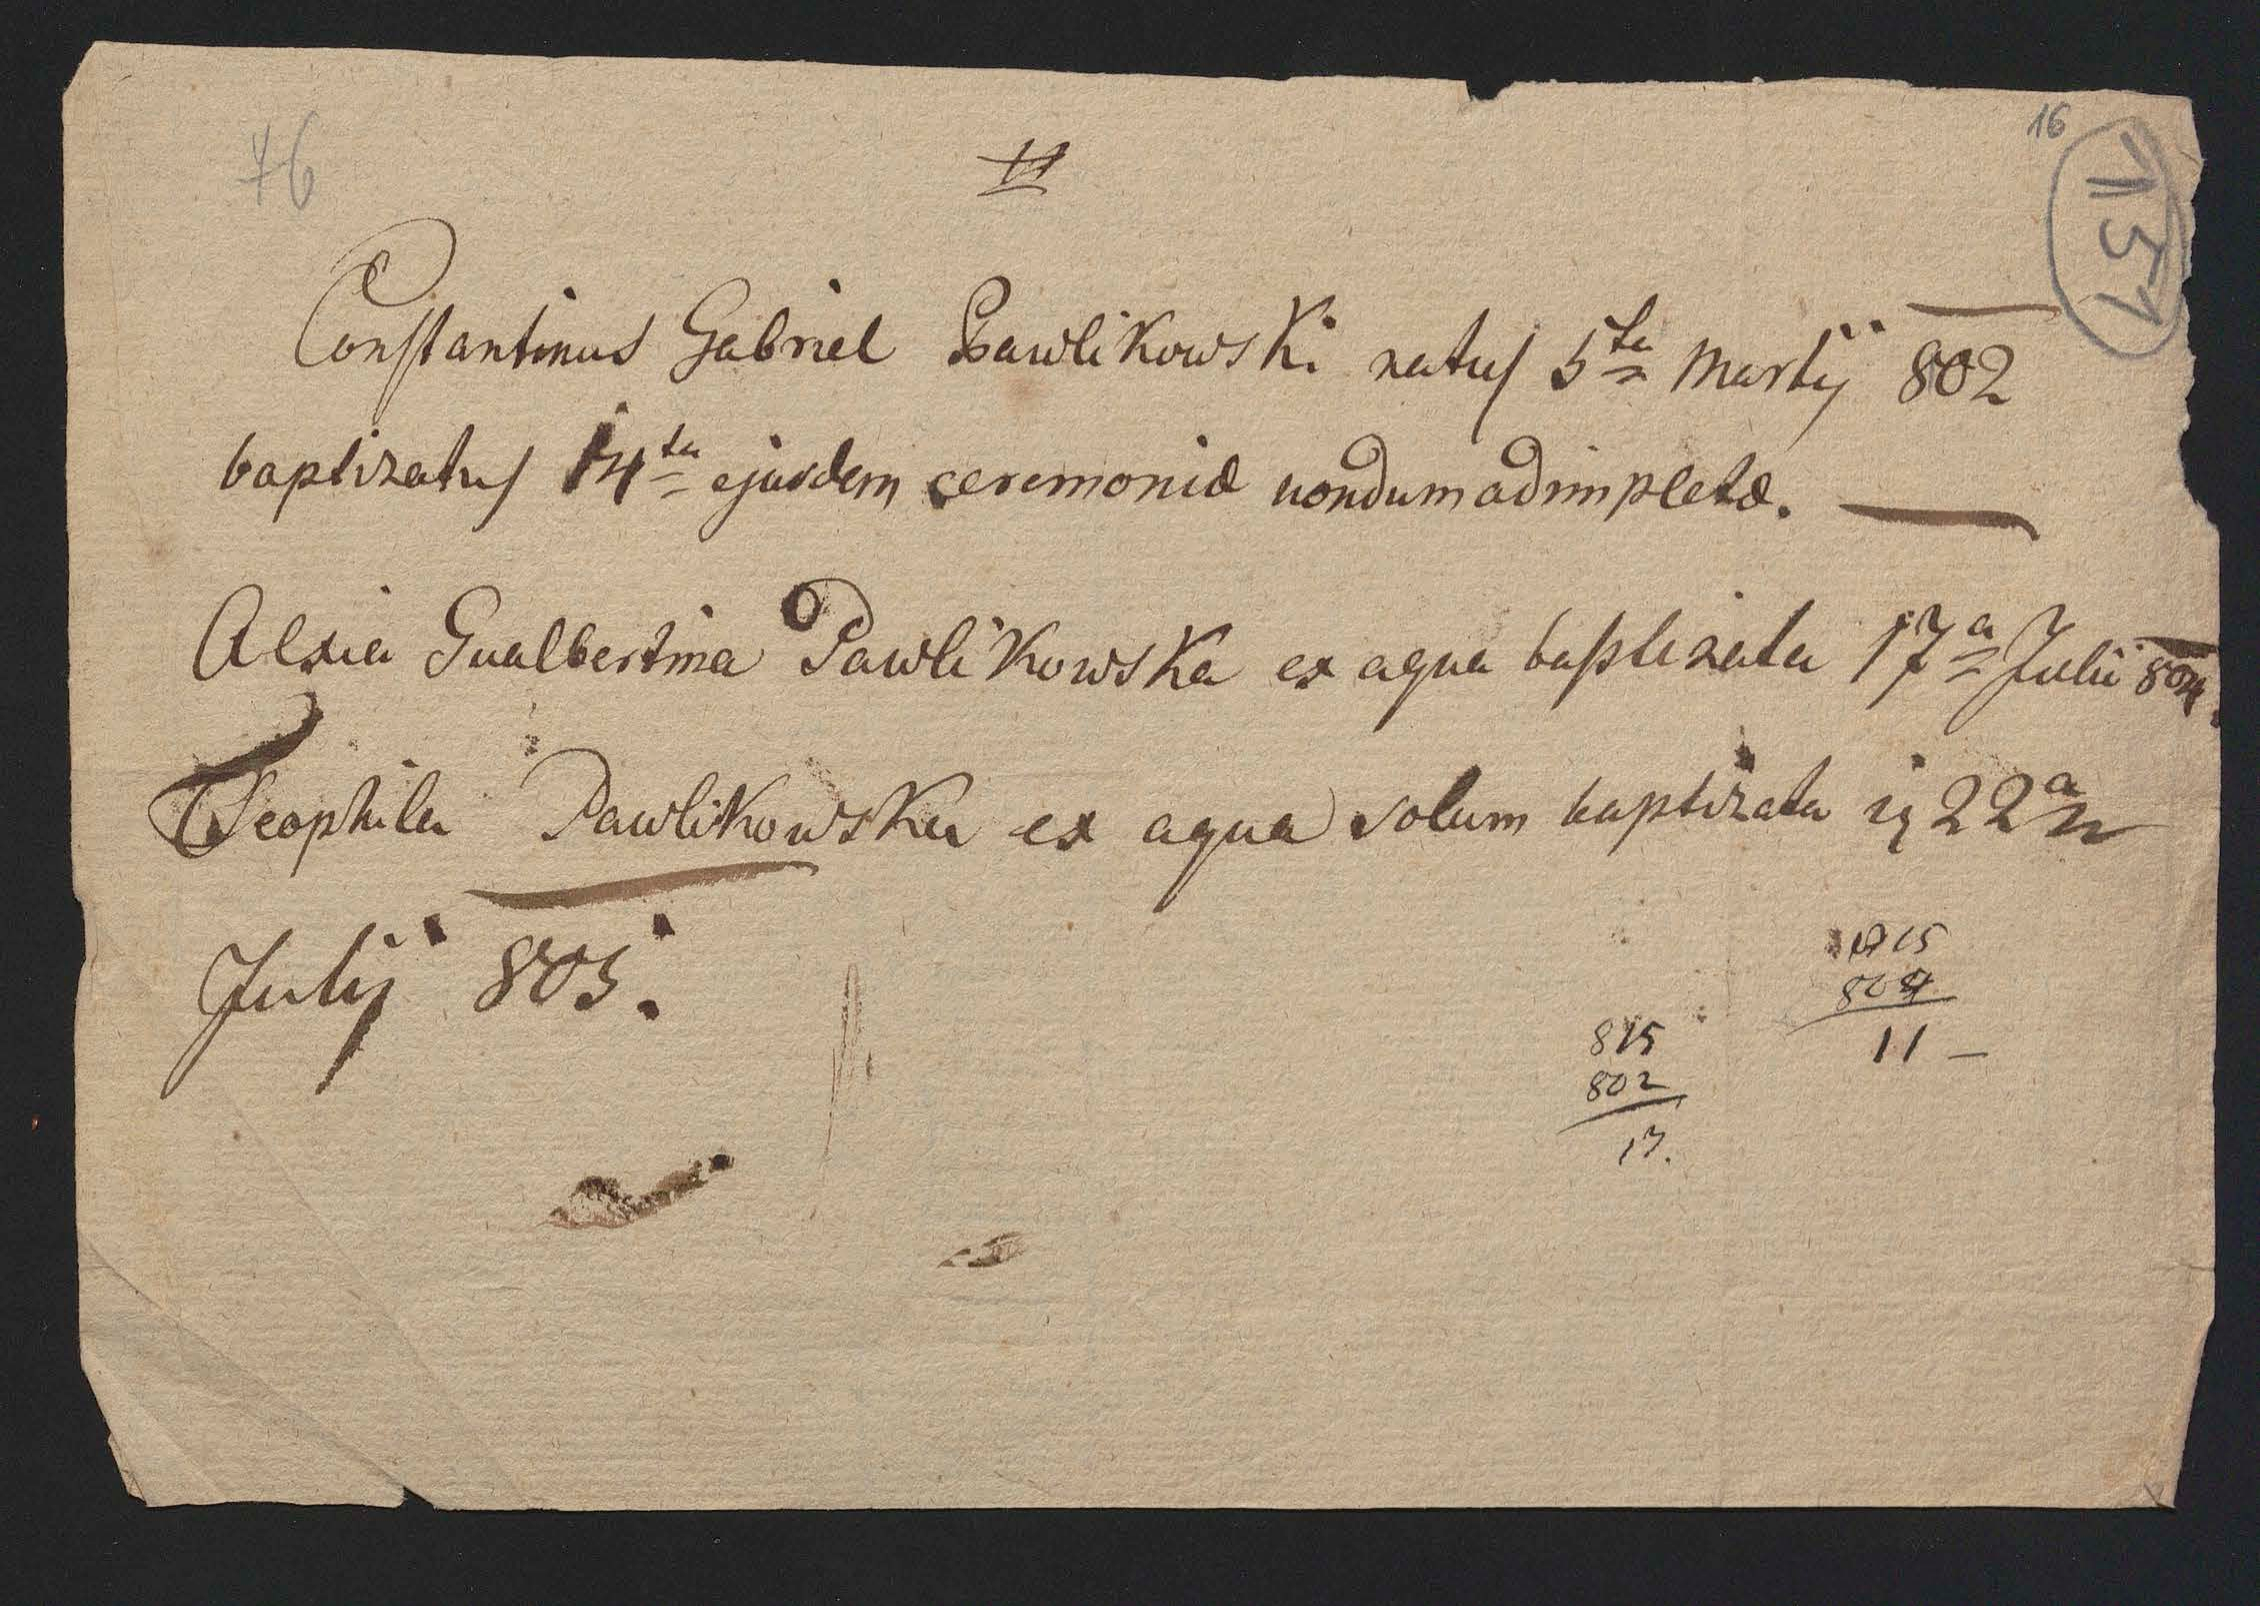 76
16
151
Constantinus Gabriel Pawlikowski natus 5ta Martij 802
baptizatus 14ta ejusdem ceremoniæ nondum adimpletæ.
Alxia Gualbertina Pawlikowska ex aqua baptizata 17a Julii 804.
Teophila Pawlikowska ex aqua solum baptizata 22a
Julij 805.
815
804
11 —
815
802
13.